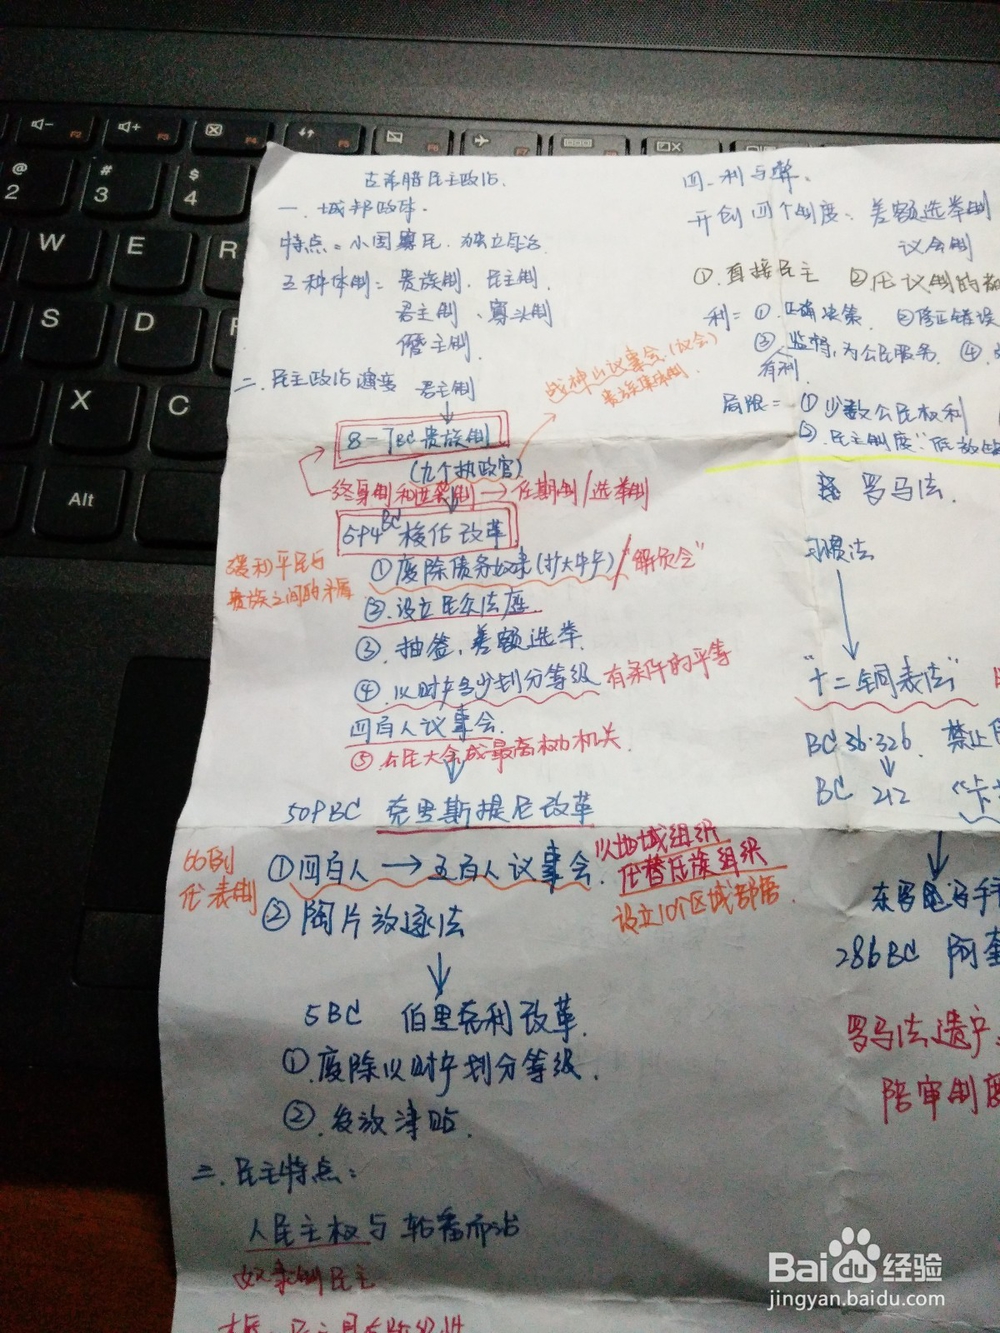 古希腊民主政治.
一. 城邦政体.
特点:小国寡民. 独立自治
五种体制: 贵族制. 民主制.
君主制、寡头制
僭主制.
二. 民主政治演变 君主制
战神山议事会(议会)
贵族
8-7BC 贵族制
(九个执政官)
终身制和世袭制→任期制/选举制
594BC 梭伦改革
缓和平民与
贵族之间的矛盾
①废除债务奴隶(扩大中午)/"解负令"
②.设立民众法庭.
③. 抽签, 差额选举.
④. 以财产多少划分等级 有条件的平等
四百人议事会.
⑤公民大会成最高权力机关.
509BC 克里斯提尼改革
比例
代表制
①四百人→五百人议事会.
以地域组织
代替氏族组织
设立10个区域部落.
②陶片放逐法
5BC 伯里克利改革.
①.废除以财产划分等级.
②.发放津贴.
三. 民主特点:
人民主权与轮番而治
奴隶制民主
四. 利与弊.
开创四个制度: 差额选举制
议会制
①.直接民主 ②代议制的
利=①.正确决策. ②修正错误
③.监督,为公民服务. ④.
有利.
局限=①少数公民权利
②.民主制度:低效
罗马法.
习惯法
"十二铜表法"
BC 36.326. 禁止
BC 212 《卡
东罗马
286BC 阿奎
罗马法遗产
陪审制度
@ 2
# 3
$ 4
W E R
S D F
X C
Alt
F2 F3 F4 F5 F6 F7 F8
Baidu 经验
jingyan.baidu.com